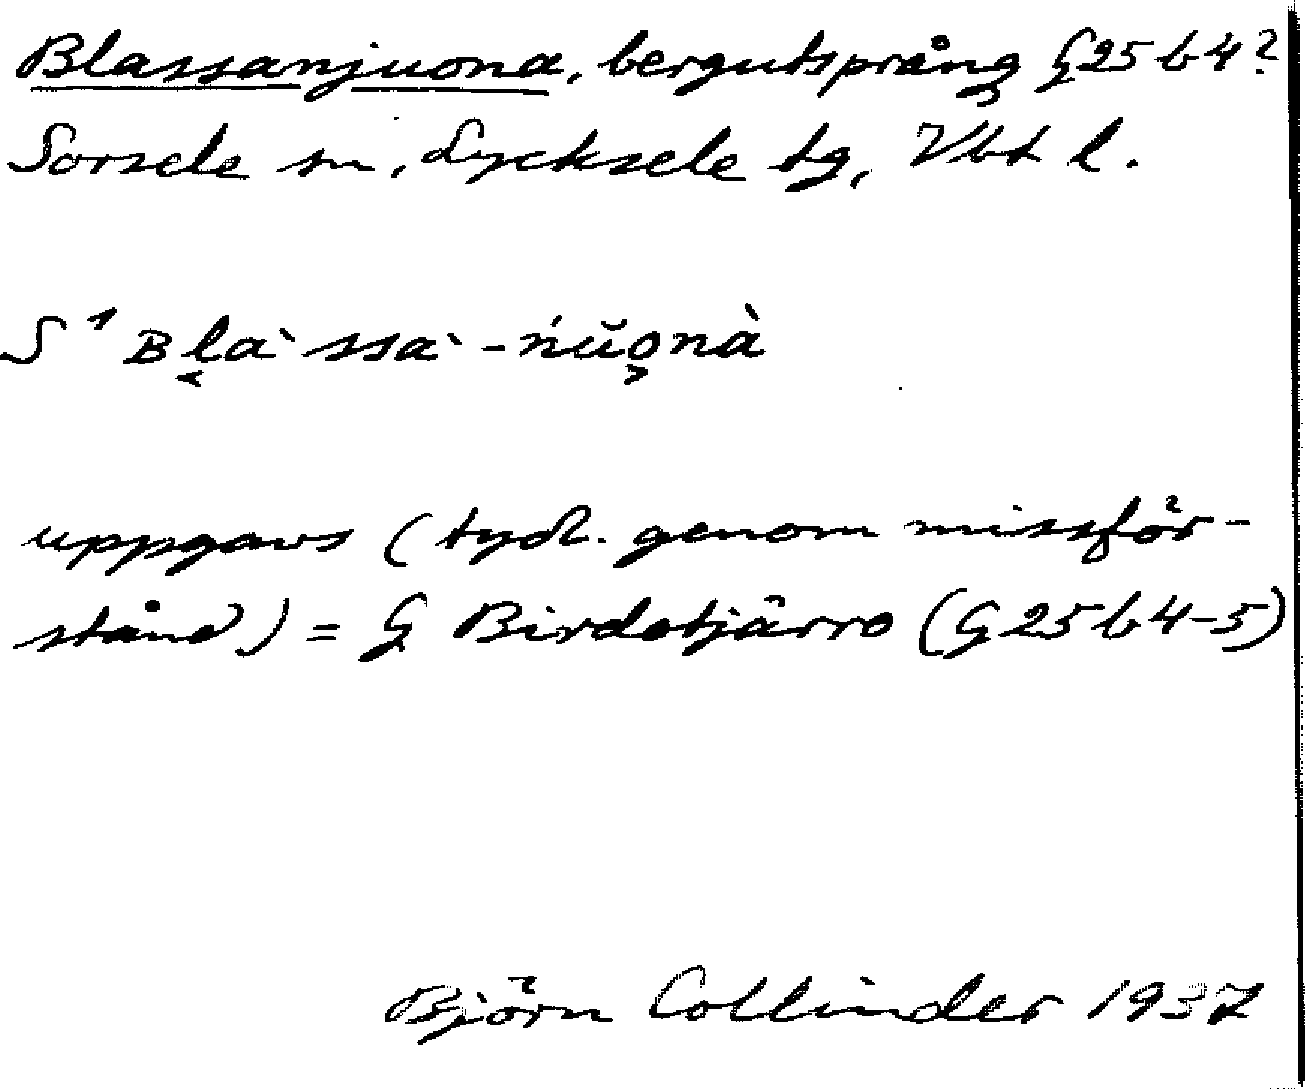 Blassanjuona, bergutsprång G 25 b 4?
Sorsele sn, Lycksele tg, Vbt l.
S¹ Bl͔aˋssaˋ-ńŭo͕nà
uppgavs (tydl. genom missför-
stånd) = G Birdetjårro (G 25 b 4-5)
Björn Collinder 1937